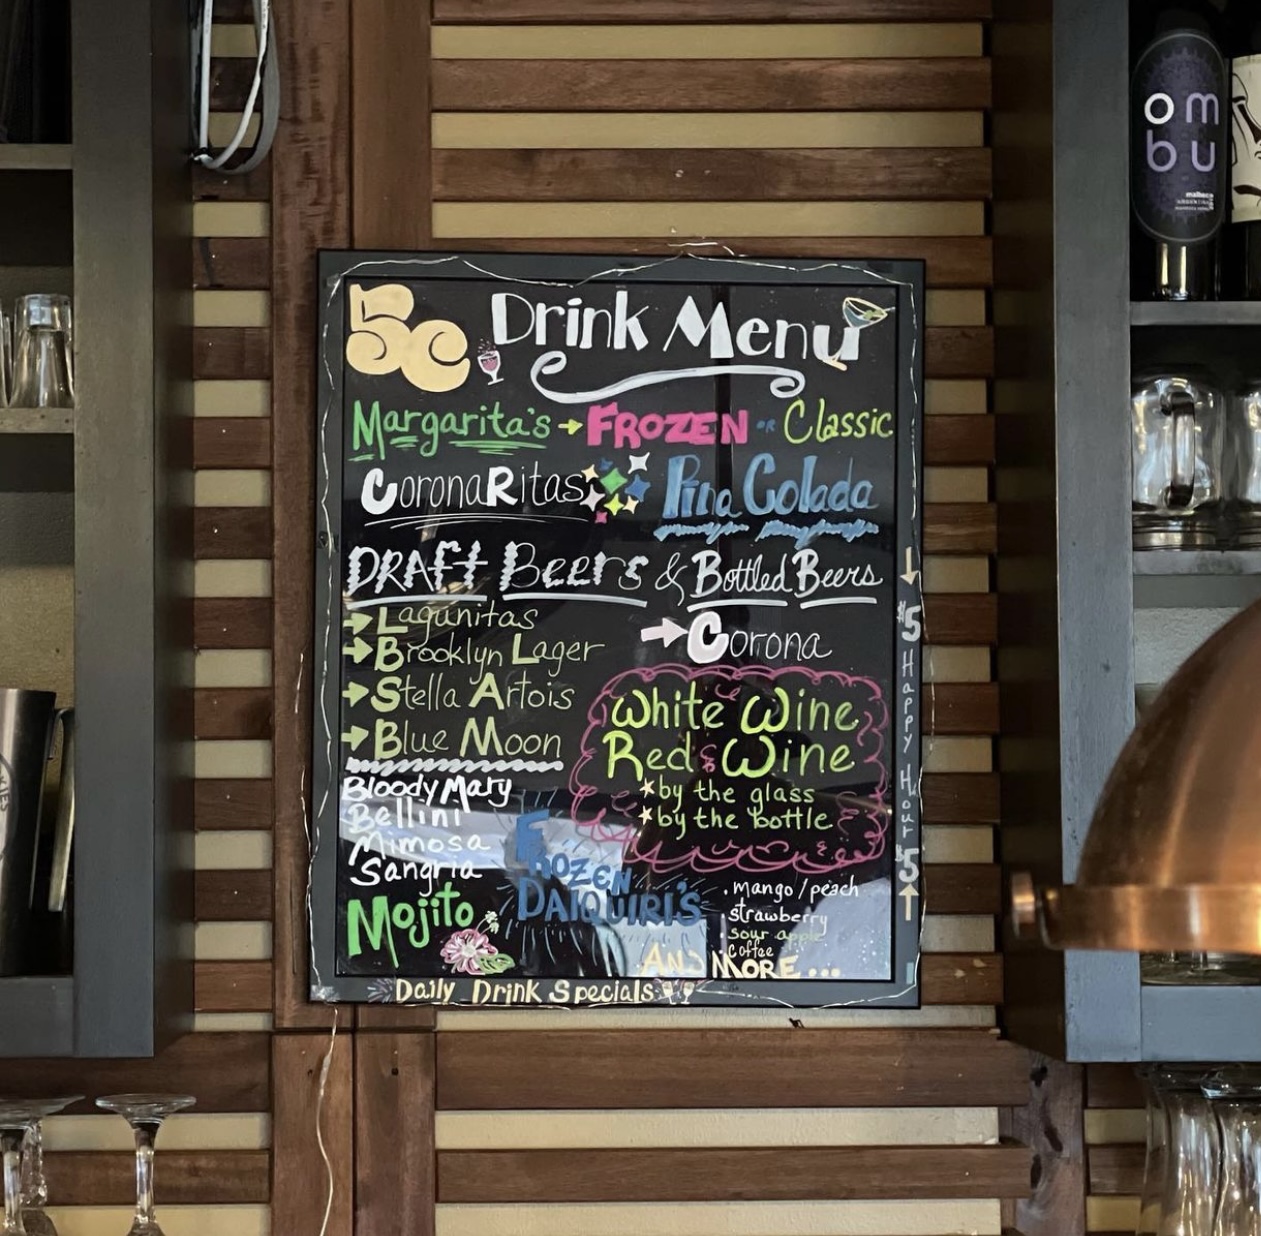 5c Drink Menu
Margarita's → FROZEN OR Classic
CoronaRitas Pina Colada
DRAFt Beers & Bottled Beers
→ Lagunitas
→ Brooklyn Lager
→ Stella Artois
→ Blue Moon
→ Corona
White Wine
Red & Wine
*by the glass
*by the bottle
Bloody Mary
Bellini
Mimosa
Sangria
Mojito
FROZEN
DAIQUIRI'S
. mango/peach
. strawberry
. sour apple
. coffee
AND MORE ...
Daily Drink Specials
→ $5 Happy Hour $5 ←
om
bu
malbec